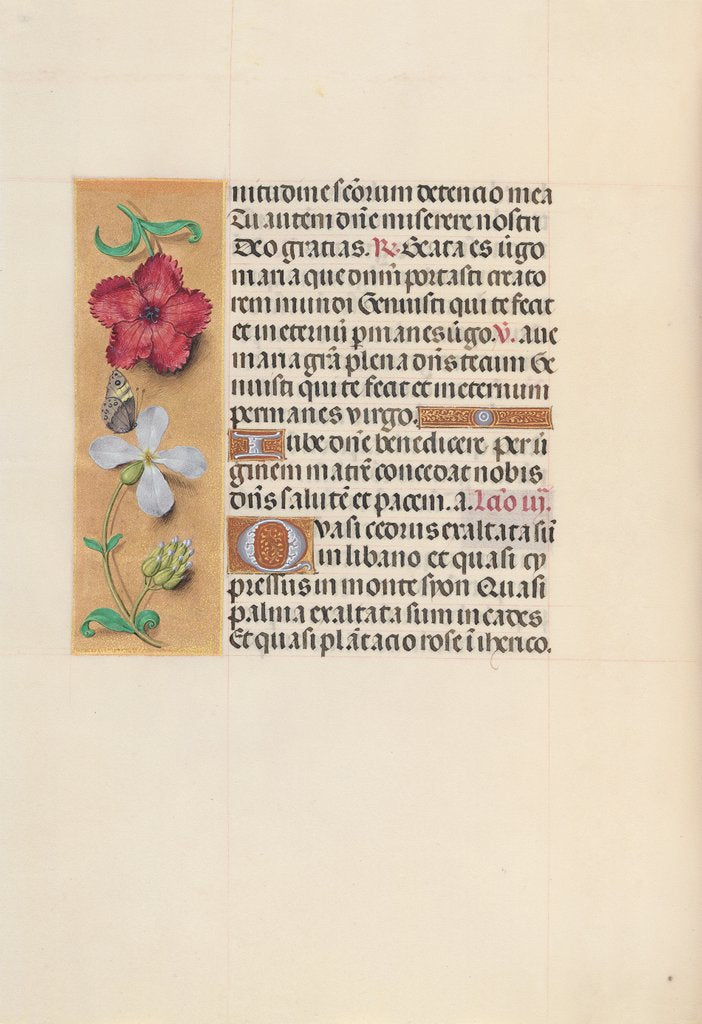 nitudine sc̄orum detencio mea
Tu autem dn̄e miserere nostri
Deo gratias. R̷. Beata es v̄go
maria que dnm̄ portasti creato
rem mundi Genuisti qui te fecit
et in eternū ꝑmanes v̄go. V̷. aue
maria grā plena dn̄s tecum Ge
nuisti qui te fecit et in eternum
permanes virgo.
Iube dn̄e benedicere Per v̄
ginem matrē concedat nobis
dn̄s salutē et pacem. a. Lcīo iij.
Qvasi cedrus exaltata sū
in libano et quasi cy
pressus in monte syon Quasi
palma exaltata sum in cades
Et quasi plātacio rose ī iherico.